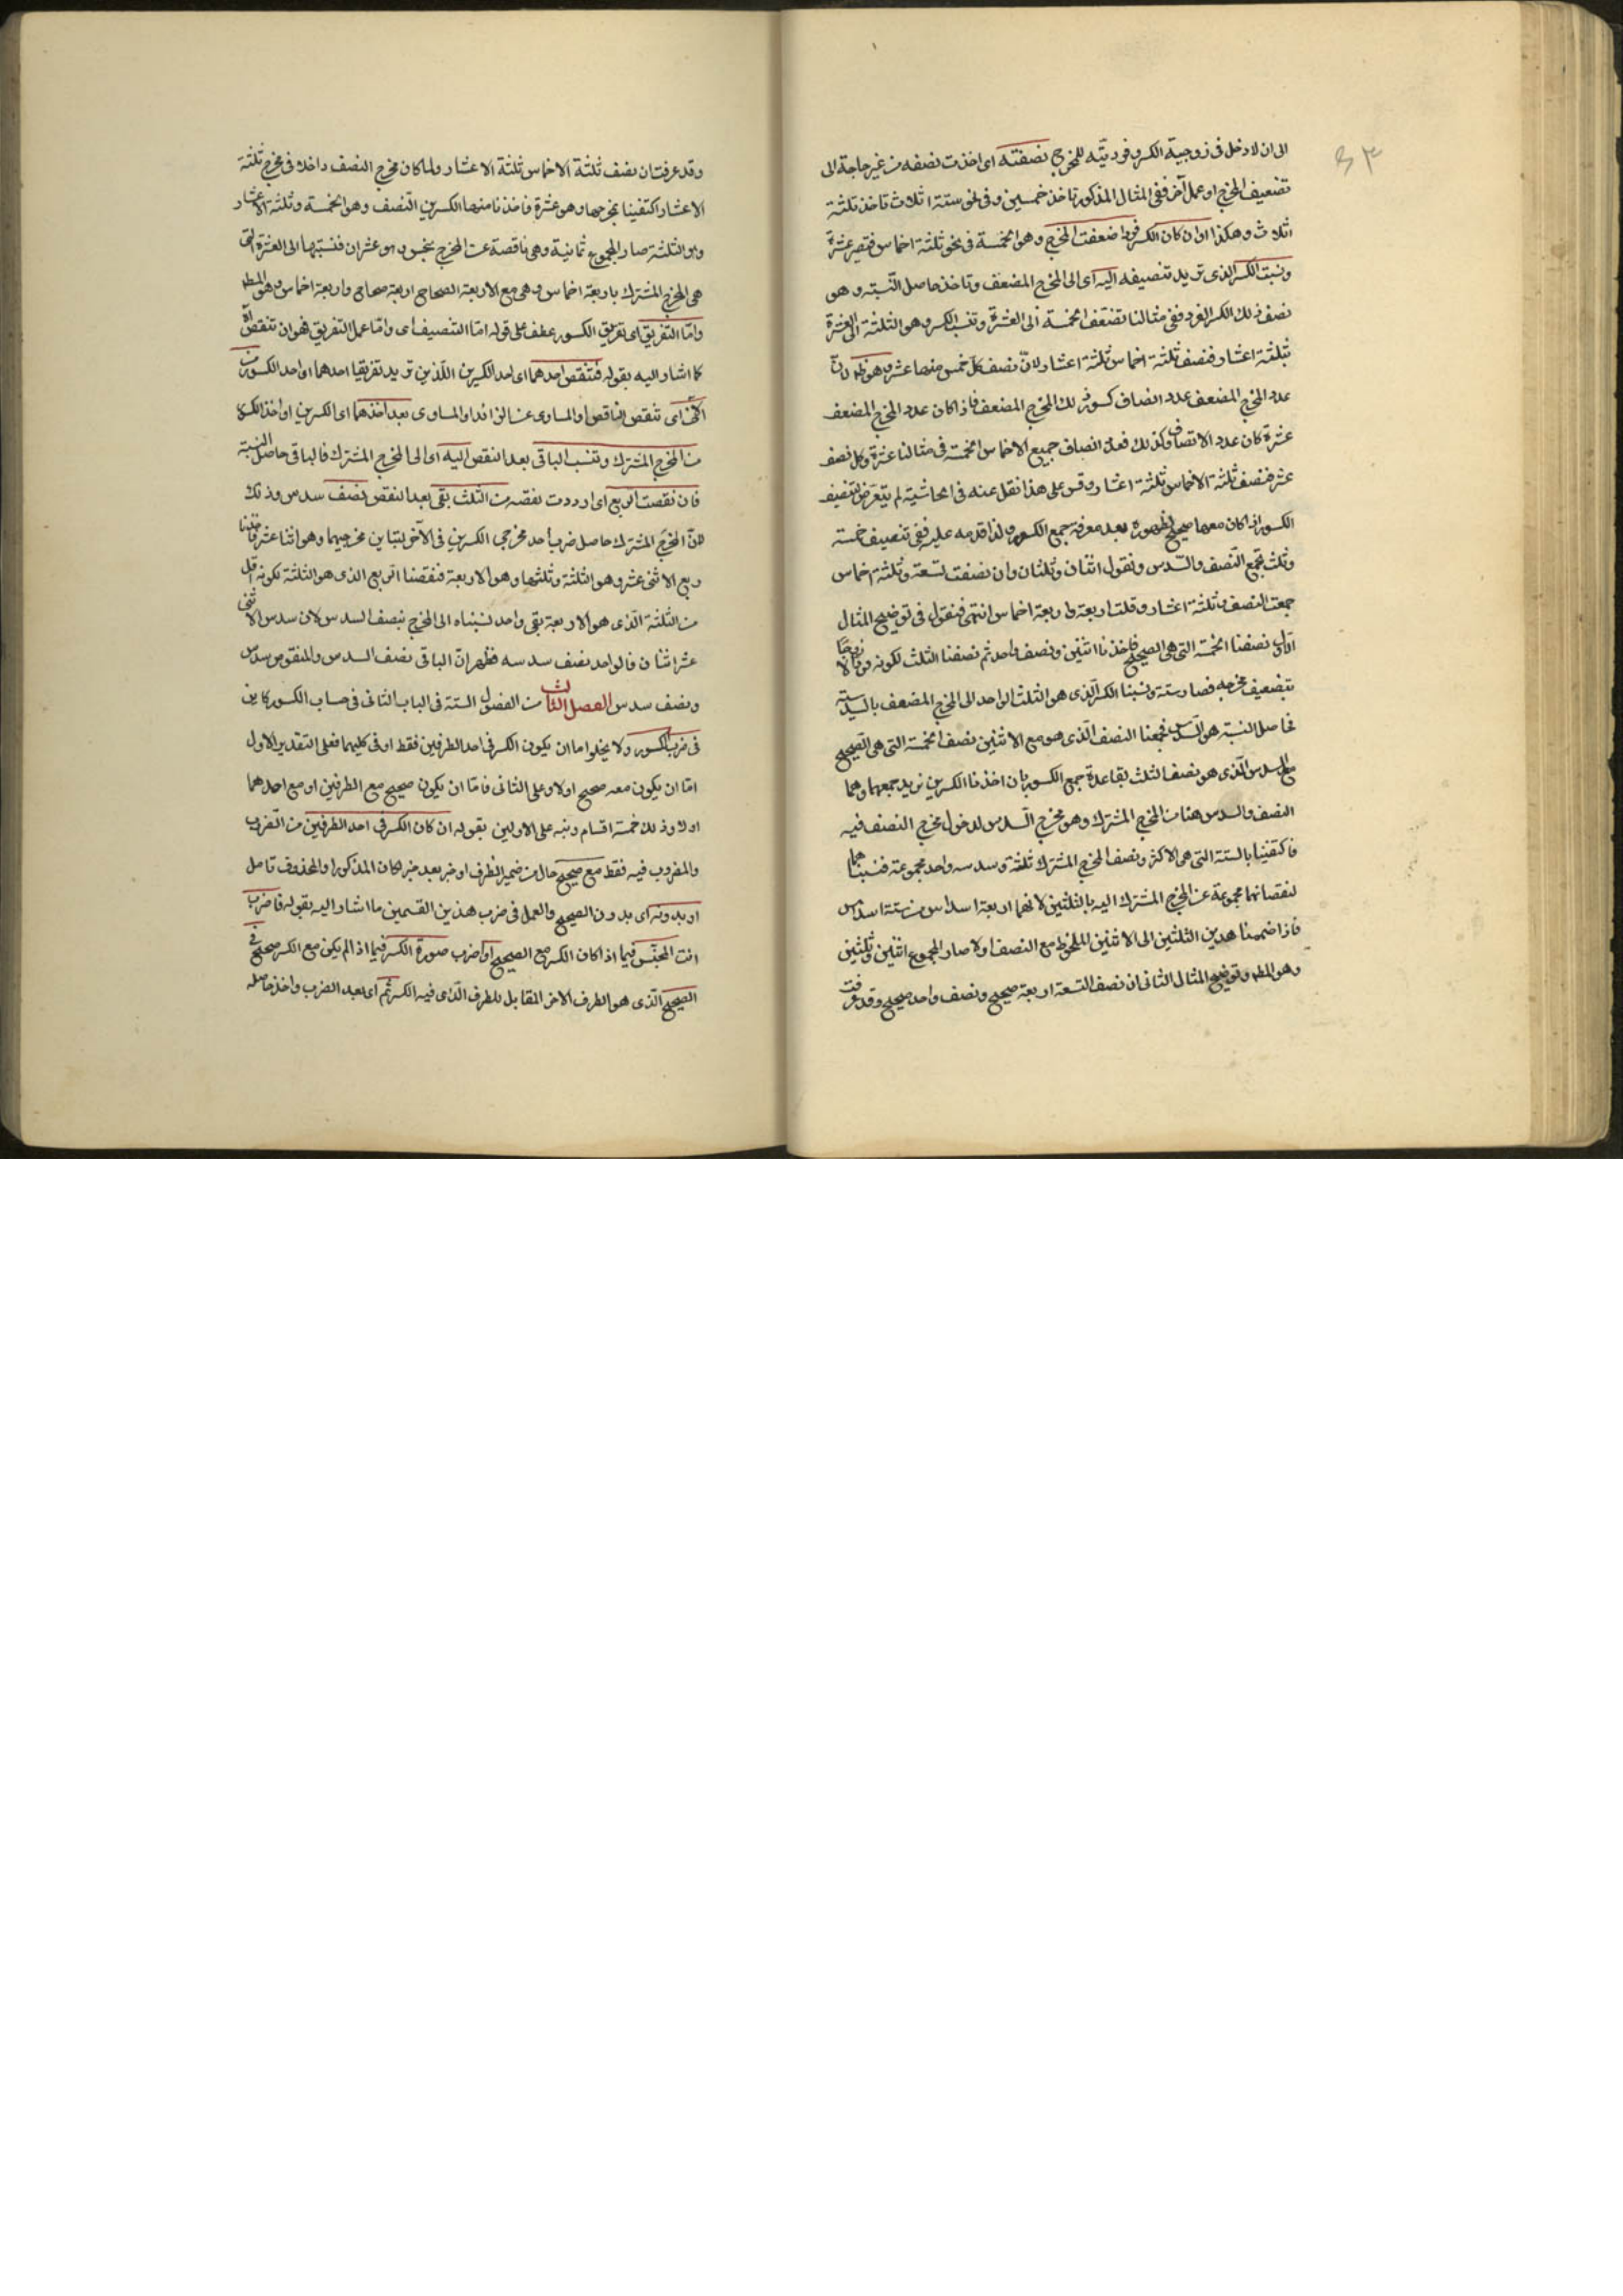 ٤٣
الى ان لا دخل فى زوجية الكسر وفرديته للمخرج نصفته اى اخذت نصفه من غير حاجة الى
تضعيف المخرج او عمل آخر ففى المثال المذكور تاخذ خمسين وفى نحو ستة اثلاث تاخذ ثلثة
اثلاث وهكذا او ان كان الكسر فردا ضعفت المخرج وهو الخمسة فى نحو ثلثة اخماس فتصير عشرة
ونسبت الكسر الذى تريد تنصيفه اليه اى الى المخرج المضعف وتاخذ حاصل النسبة وهو
نصف ذلك الكسر الفرد ففى مثالنا تضعف الخمسة الى العشرة وتنسب الكسر وهو الثلثة الى العشرة
بثلثة اعشار فنصف ثلثة اخماس ثلثة اعشار لان نصف كل خمس منها عشر وهو ظ لان
عدد المخرج المضعف عدد انصاف كسور ذلك المخرج المضعف فاذا كان عدد المخرج المضعف
عشرة كان عدد الانصاف كذلك فعدد انصاف جميع الاخماس الخمسة فى مثالنا عشرة وكل نصف
عشر فنصف ثلثة الاخماس ثلثة اعشار وقس على هذا نقل عنه فى الحاشية لم يتعرض لتنصيف
الكسور اذا كان معها صحيح لظهوره بعد معرفة جمع الكسور ولذا قدمه عليه ففى تنصيف خمسة
وثلث تجمع النصف والسدس وتقول اثنان وثلثان وان نصفت تسعة وثلثة اخماس
جمعت النصف وثلثة اعشار وقلت اربعة واربعة اخماس انتهى فنقول فى توضيح المثال
الاول نصفنا الخمسة التى هى الصحيح فاخذنا اثنين ونصف واحد ثم نصفنا الثلث لكونه فردا
بتضعيف مخرجه فصار ستة ونسبنا الكسر الذى هو الثلث الواحد الى المخرج المضعف بالسدس
فحاصل النسبة هو السدس فجمعنا النصف الذى هو مع الاثنين نصف الخمسة التى هى الصحيح
مع السدس الذى هو نصف الثلث بقاعدة جمع الكسور بان اخذنا الكسرين نريد جمعهما وهما
النصف والسدس هنا من المخرج المشترك وهو مخرج السدس لدخول مخرج النصف فيه
فاكتفينا بالستة التى هى الاكثر ونصف المخرج المشترك ثلثة وسدسه واحد مجموعة فنسبناهما
لنقصانهما مجموعة عن المخرج المشترك اليه بالثلثين لانهما اربعة اسداس من ستة اسداس
فاذا ضممنا هذين الثلثين الى الاثنين الملحوظ مع النصف اولا صار المجموع اثنين وثلثين
وهو المط وتوضيح المثال الثانى ان نصف التسعة اربعة صحيح ونصف واحد صحيح وقد عرفت
وقد عرفت ان نصف ثلثة الاخماس ثلثة الاعشار ولما كان مخرج النصف داخلا فى مخرج ثلثة
الاعشار اكتفينا بمخرجها وهو عشرة فاخذنا منها الكسرين النصف وهو الخمسة وثلثة الاعشار
وهو الثلثة صار المجموع ثمانية وهى ناقصة عن المخرج فنسبتها الى العشرة التى
هى المخرج المشترك باربعة اخماس وهى مع الاربعة الصحاح اربعة صحاح واربعة اخماس وهو المط
واما التفريق اى تفريق الكسور عطف على قوله اما التنصيف اى واما عمل التفريق فهو ان تنقص
كما اشار اليه بقوله فتنقص احدهما اى احد الكسرين اللذين تريد تفريقا احدهما او احد الكسور من
الآخر اى تنقص الناقص او المساوى عن الزائد او المساوى بعد اخذهما اى الكسرين او اخذ الكسور
من المخرج المشترك وتنسب الباقى بعد النقص اليه اى الى المخرج المشترك فالباقى حاصل النسبة
فان نقصت الربع اى اردت نقصه من الثلث بقى بعد النقص نصف سدس وذلك
لان المخرج المشترك حاصل ضرب احد مخرجى الكسرين فى الآخر لتباين مخرجيهما وهو اثنا عشر فاخذنا
ربع الاثنى عشر وهو الثلثة وثلثها وهو الاربعة فنقصنا الربع الذى هو الثلثة لكونه اقل
من الثلث الذى هو الاربعة بقى واحد نسبناه الى المخرج بنصف السدس لان سدس الاثنى
عشر اثنان فالواحد نصف سدسه فظهر ان الباقى نصف السدس والمنقوص سدس
ونصف سدس الفصل الثالث من الفصول الستة فى الباب الثانى فى حساب الكسور كائن
فى ضرب الكسور ولا يخلوا اما ان يكون الكسر فى احد الطرفين فقط او فى كليهما فعلى التقدير الاول
اما ان يكون معه صحيح اولا وعلى الثانى فاما ان يكون صحيح مع الطرفين او مع احدهما
اولا وذلك خمسة اقسام ونبه على الاولين بقوله ان كان الكسر فى احد الطرفين من المضروب
والمضروب فيه فقط مع صحيح حال من ضمير الظرف او خبر بعد خبر لكان المذكور او المحذوف تامل
او بدونه اى بدون الصحيح والعمل فى ضرب هذين القسمين ما اشار اليه بقوله فاضرب
انت المجنس فيما اذا كان الكسر مع الصحيح او اضرب صورة الكسر فيما اذا لم يكن مع الكسر صحيح فى
الصحيح الذى هو الطرف الآخر المقابل للطرف الذى فيه الكسر ثم اى بعد الضرب واخذ حاصله